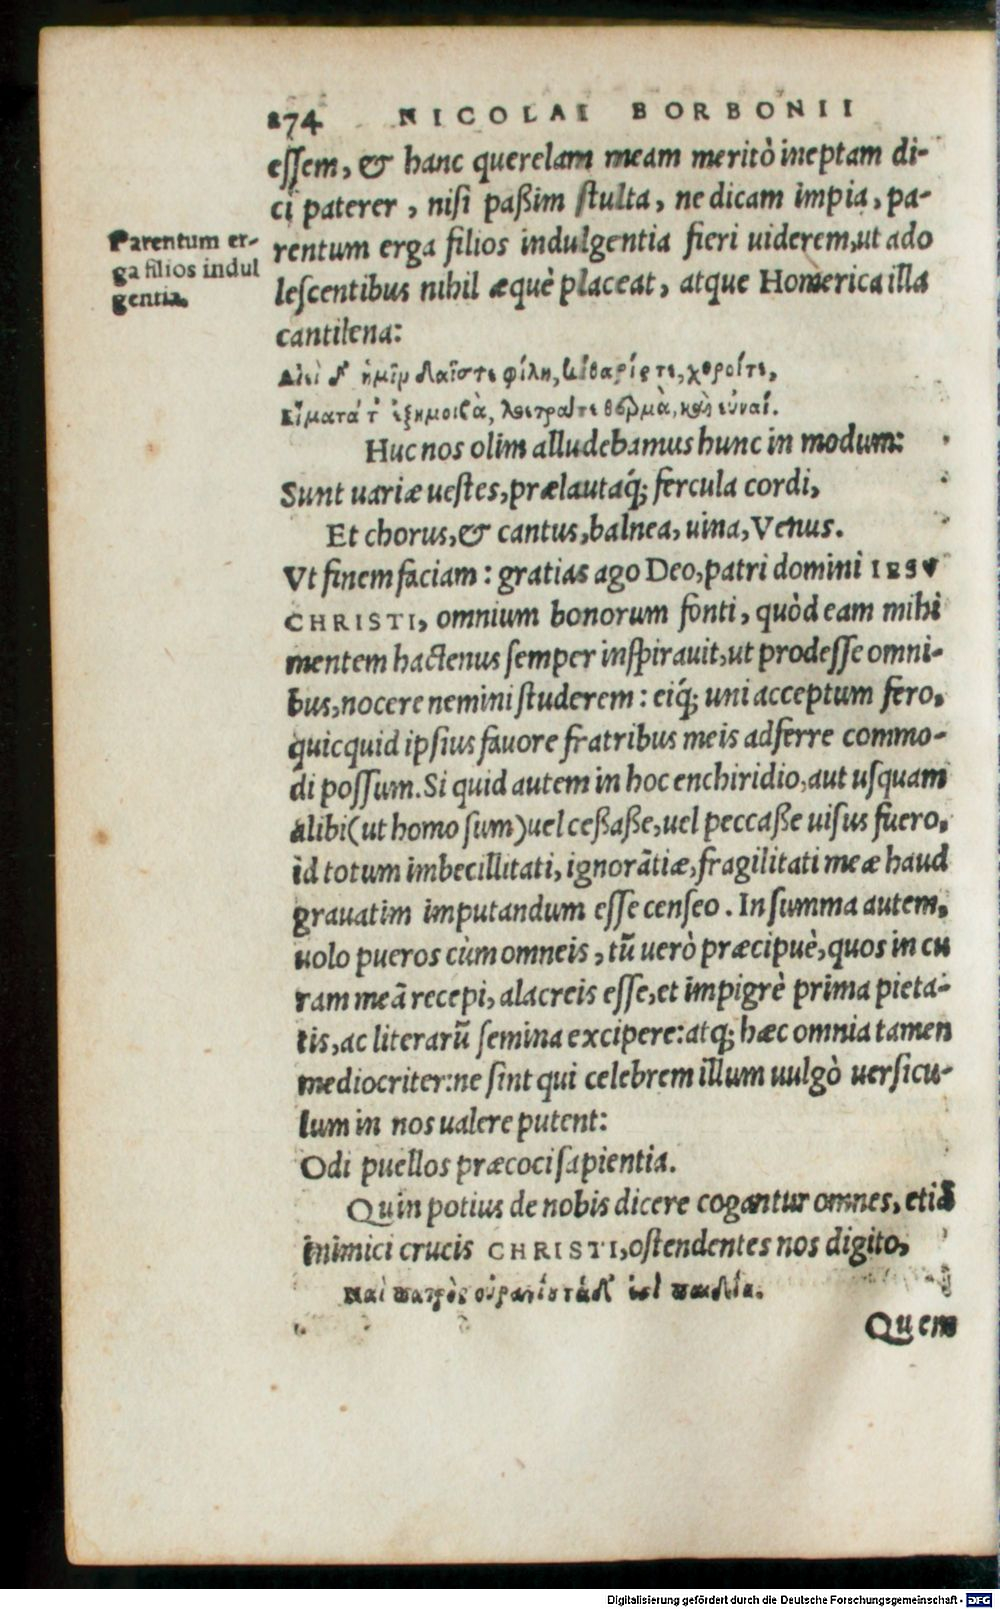 274 NICOLAI BORBONII
essem, & hanc querelam meam meritò ineptam di-
ci paterer, nisi paßim stulta, ne dicam impia, pa-
Parentum er-
ga filios indul
gentia.
rentum erga filios indulgentia fieri uiderem, ut ado
lescentibus nihil æquè placeat, atque Homerica illa
cantilena:
Αἰεὶ δ' ἡμῖν δαῖς τε φίλη, κίθαρίς τε, χοροίτε,
Εἵματά τ' ἐξημοιβὰ, λοετρά τε θερμὰ, καὶ εὐναί.
Huc nos olim alludebamus hunc in modum:
Sunt uariæ uestes, prælautaq́; fercula cordi,
Et chorus, & cantus, balnea, uina, Venus.
Vt finem faciam: gratias ago Deo, patri domini IESV
CHRISTI, omnium bonorum fonti, quòd eam mihi
mentem hactenus semper inspirauit, ut prodesse omni-
bus, nocere nemini studerem: eiq́; uni acceptum fero,
quicquid ipsius fauore fratribus meis adferre commo-
di possum. Si quid autem in hoc enchiridio, aut usquam
alibi (ut homo sum) uel ceßaße, uel peccaße uisus fuero,
id totum imbecillitati, ignorãtiæ, fragilitati meæ haud
grauatim imputandum esse censeo. In summa autem,
uolo pueros cùm omneis, tũ uerò præcipuè, quos in cu
ram meã recepi, alacreis esse, et impigrè prima pieta-
tis, ac literarũ semina excipere: atq; hæc omnia tamen
mediocriter: ne sint qui celebrem illum uulgò uersicu-
lum in nos ualere putent:
Odi puellos præcoci sapientia.
Quin potius de nobis dicere cogantur omnes, etiã
inimici crucis CHRISTI, ostendentes nos digito,
Ναὶ πατρὸς οὐρανίου τάδ' ἐστὶ παιδία.
Quem
Digitalisierung gefördert durch die Deutsche Forschungsgemeinschaft - DFG